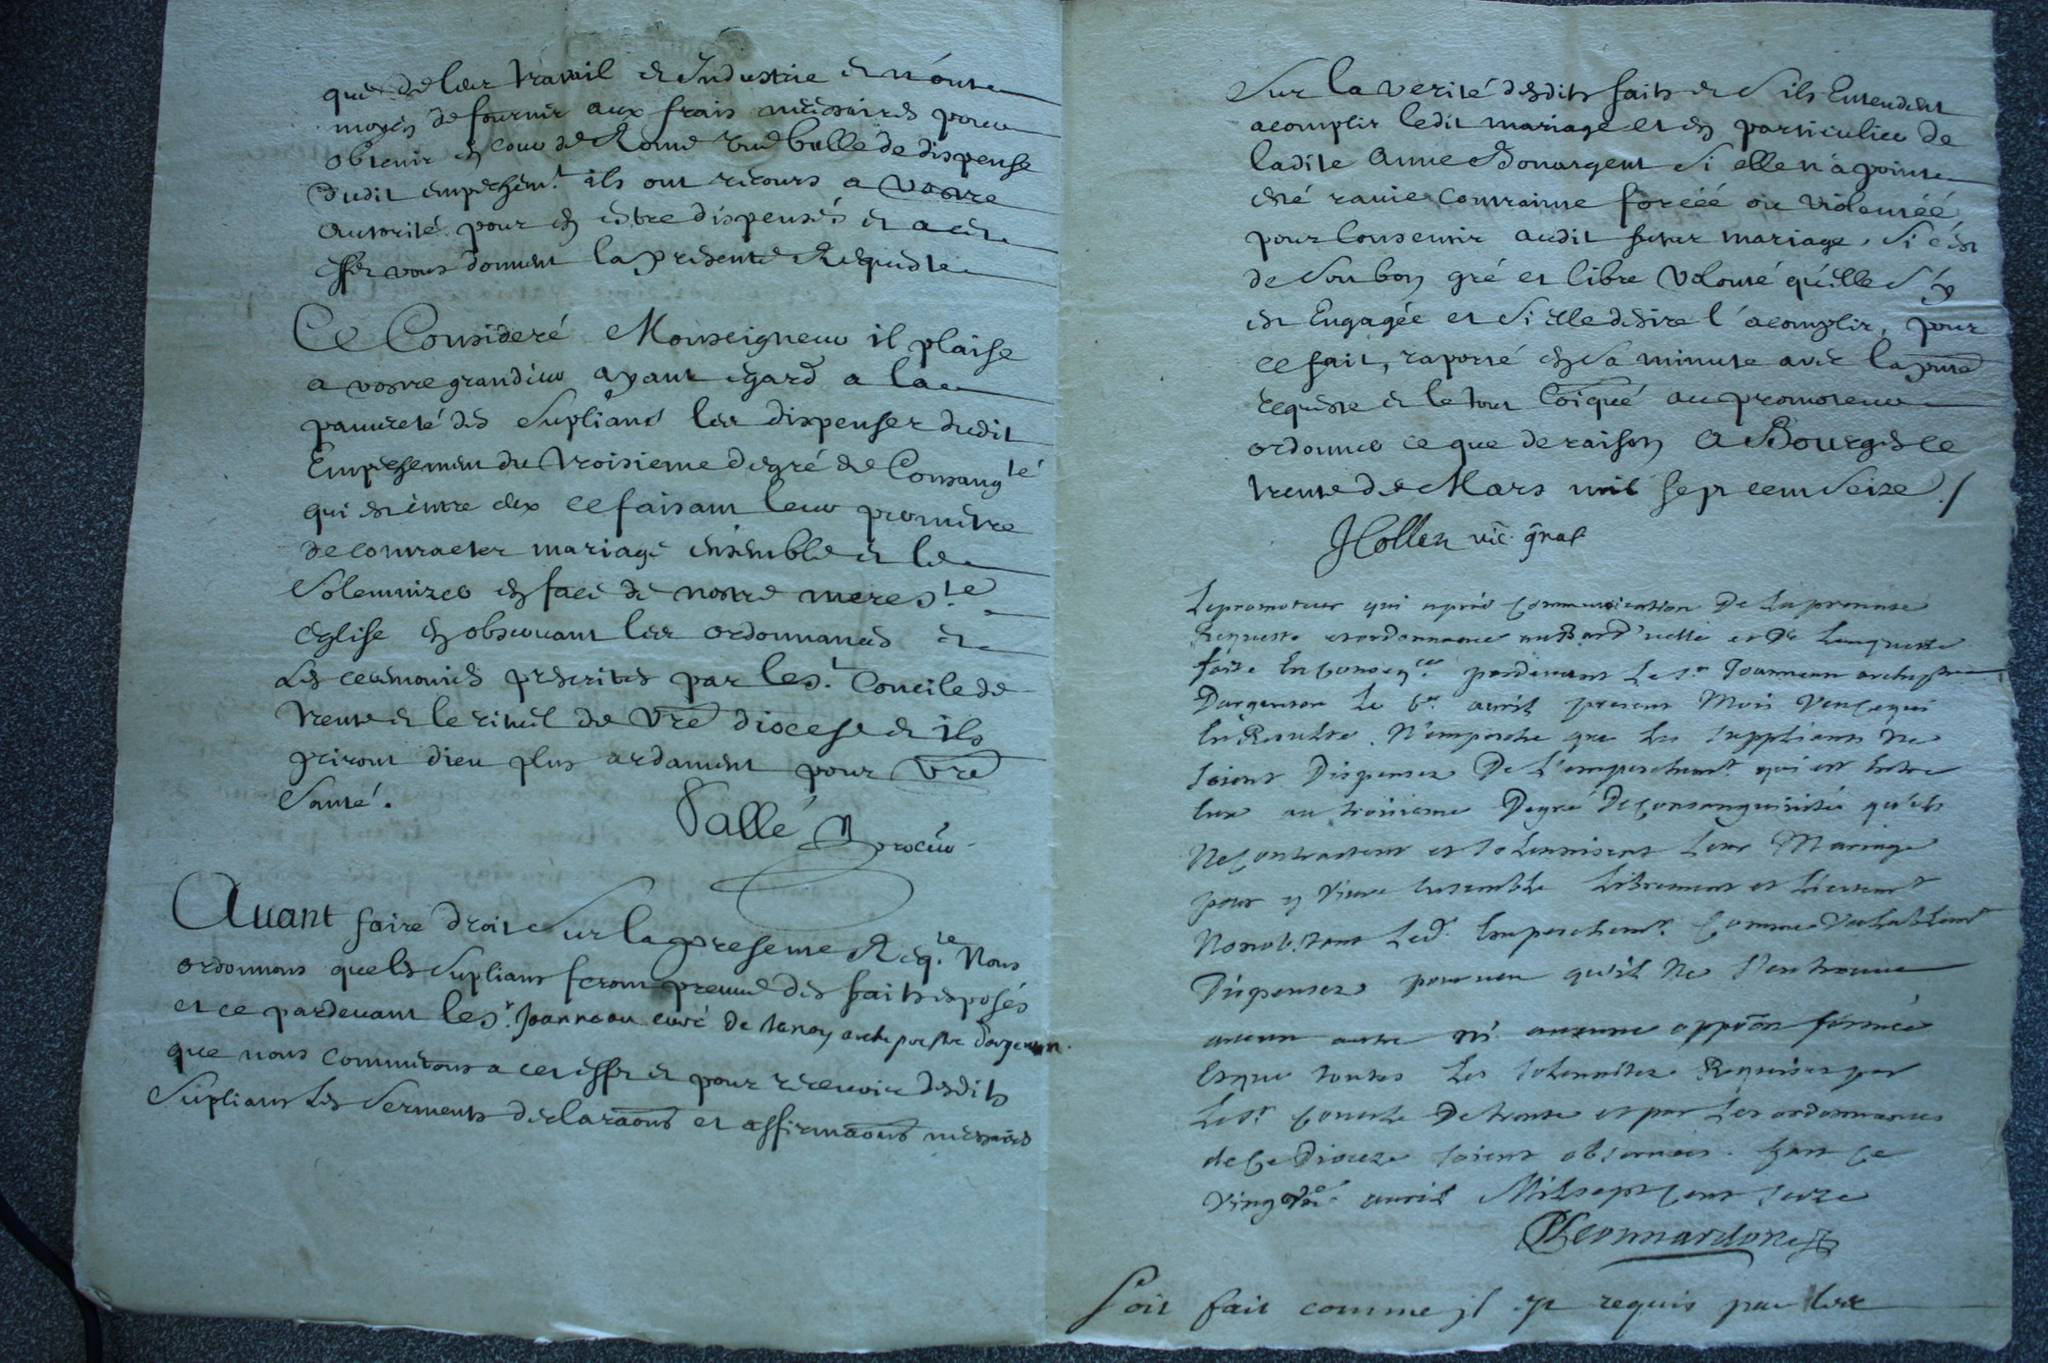 que de leur travail et Industrie et n'ont
moyen de fournir aux frais necessaires pour
obtenir en cour de Rome une bulle de dispense
dudit empeschem.t ils ont recours a vostre
autorité pour en estre dispensés et a cet
effet vous donnent la presente Requeste
Ce Consideré Monseigneur il plaise
a vostre grandeur ayant egard a la
pauvreté des Suplians les dispenser dudit
Empeschement du troisieme degré de Consang.té
qui est entre eux ce faisant leur permettre
de contracter mariage ensemble et le
Solemnizer en face de nostre mere S.te
Eglise en observant les ordonnances et
les ceremonies prescrites par le S.t Concile de
trente et le rituel de vre diocese et ils
priront dieu plus ardament pour vre
Santé.
Vallé procur
Avant faire droit Sur la presente Req.te Nous
ordonnons que les Suplians feront preuve des faits exposés
et ce pardevant le S.r Joanneau curé de archiprestre d'argenton
que nous commettons a cet effet et pour recevoir desdits
Suplians les Serments declaraons et affirmaons necessaires
Sur la verité desdits faits et S'ils Entendent
acomplir ledit mariage et en particulier de
ladite Anne Bonargent Si elle n'a point
esté ravie contrainte forcéé ou violentéé
pour Consentir audit futur mariage, Si c'est
de Son bon gré et libre volonté qu'elle S'y
est Engagée et Si elle desire l'acomplir, pour
ce fait, raporté en Sa minute avec la pnte
requeste et le tout Coiqué au promoteur
ordonner ce que de raison A Bourges ce
trente de Mars mil Sept cent Seize /
vic gnal
Le promoteur qui apres Communication De La presente
Requeste et ordonnance au Bas d'icelle et De L'enqueste
faite En Conseq.ce pardevant Le S.r Joanneau archiptre
Dargenton Le 6.e avril present Mois Veu Ce qui
En Resulte. N'empesche que Les Suppliants Ne
Soient Dispensez De L'empeschem.t qui est Entre
Eux au troisieme Degré De Consanguinité qu'ils
Ne Contractent et Solennisent Leur Mariage
pour y Vivre Ensemble Librement et Licitem.t
Nonobstant Led. Empeschem.t Comme Valablem.t
Dispensez pourveu qu'il Ne S'en trouve
aucun autre Ni aucune oppoon formée
Et que toutes Les Solennitez Requises par
Le S.t Concile De trente et par Les ordonnances
de Ce Dioceze Soient observées. Fait Ce
avril Mil sept Cent Seize
Leonnardon
Soit fait comme il est requis par le